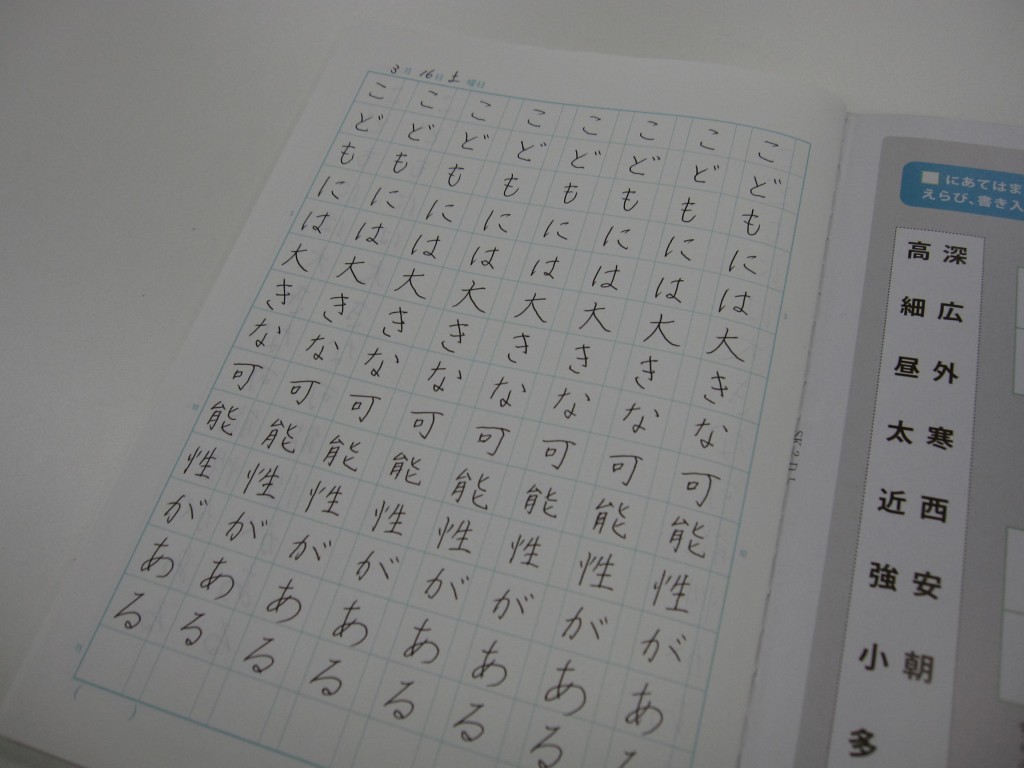 3月16日土曜日
こどもには大きな可能性があ
こどもには大きな可能性がある
こどもには大きな可能性がある
こどもには大きな可能性がある
こどもには大きな可能性がある
こどもには大きな可能性がある
こどもには大きな可能性がある
こどもには大きな可能性がある
■にあてはま
えらび、書き入
深広外寒西安朝
高細昼太近強小多